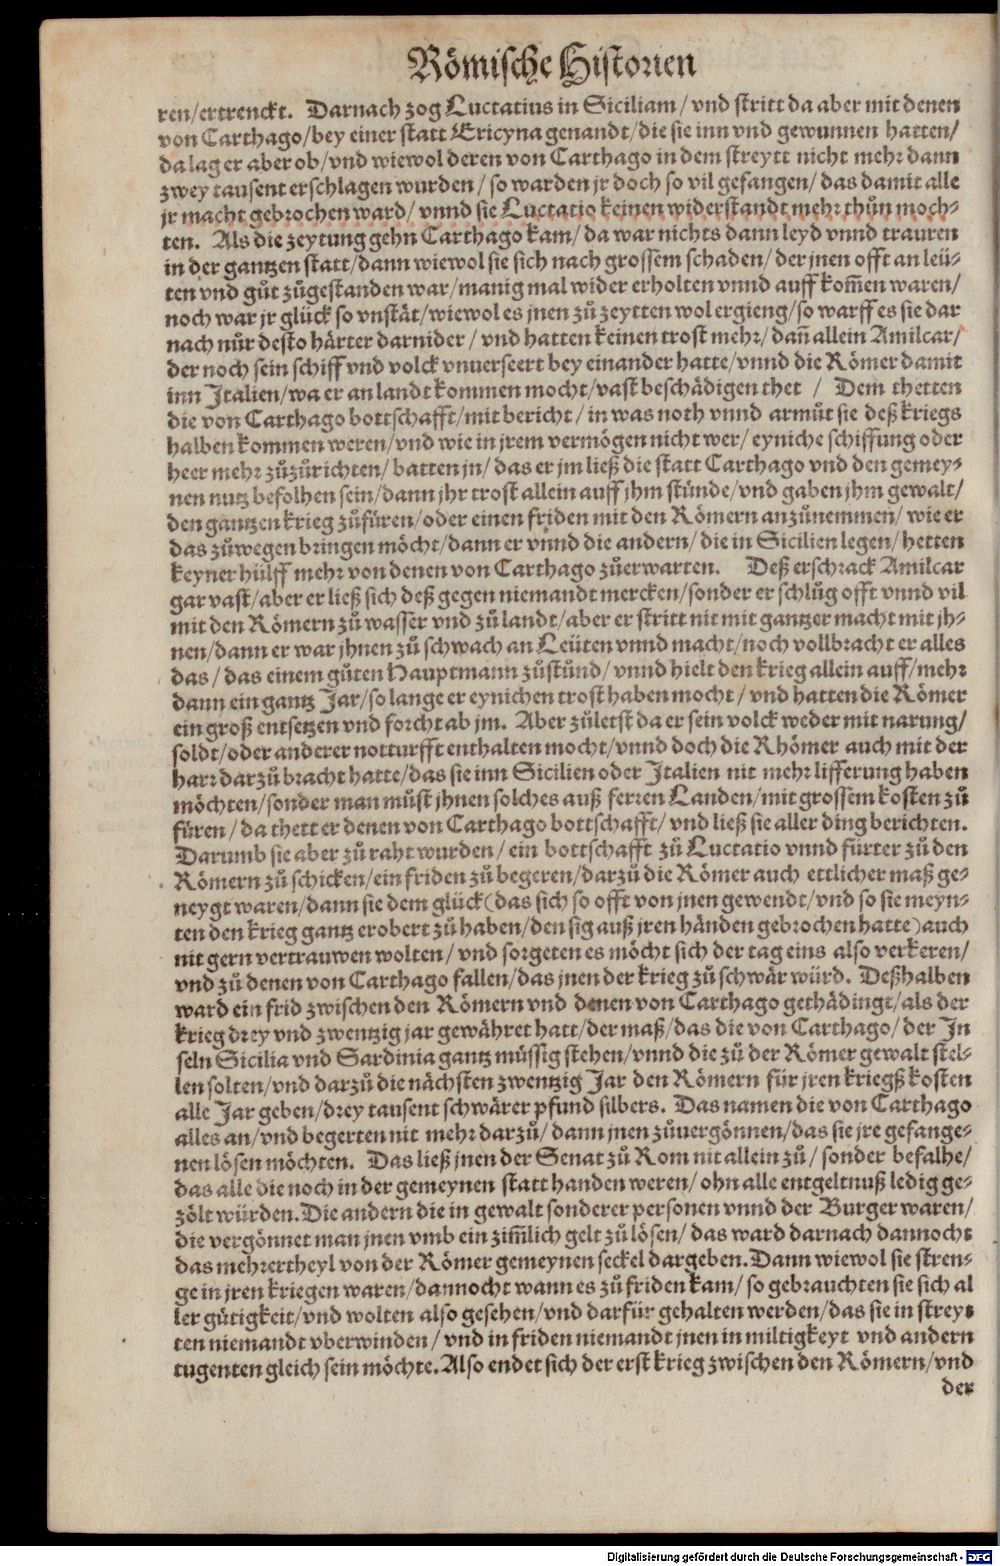 Römische Historien
ren/ertrenckt. Darnach zog Luctatius in Siciliam/vnd stritt da aber mit denen
von Carthago/bey einer statt Erycina genandt/die sie inn vnd gewunnen hatten/
da lag er aber ob/vnd wiewol deren von Carthago in dem streytt nicht mehr dann
zwey tausent erschlagen wurden/so warden jr doch so vil gefangen/das damit alle
jr macht gebrochen ward/vnnd sie Luctatio keinen widerstandt mehr thůn moch-
ten. Als die zeytung gehn Carthago kam/da war nichts dann leyd vnnd trauren
in der gantzen statt/dann wiewol sie sich nach grossem schaden/der jnen offt an leü-
ten vnd gůt zůgestanden war/manig mal wider erholten vnnd auff kom̃en waren/
noch war jr glück so vnstät/wiewol es jnen zů zeytten wol ergieng/so warff es sie dar
nach nůr desto härter darnider/vnd hatten keinen trost mehr/dañ allein Amilcar/
der noch sein schiff vnd volck vnuerseert bey einander hatte/vnnd die Römer damit
inn Italien/wa er an landt kommen mocht/vast beschädigen thet / Dem thetten
die von Carthago bottschafft/mit bericht/in was noth vnnd armůt sie deß kriegs
halben kommen weren/vnd wie in jrem vermögen nicht wer/eyniche schiffung oder
heer mehr zůzůrichten/batten jn/das er jm ließ die statt Carthago vnd den gemey-
nen nutz befolhen sein/dann jhr trost allein auff jhm stünde/vnd gaben jhm gewalt/
den gantzen krieg zůfüren/oder einen friden mit den Römern anzůnemmen/wie er
das zůwegen bringen möcht/dann er vnnd die andern/die in Sicilien legen/hetten
keyner hülff mehr von denen von Carthago zůerwarten. Deß erschrack Amilcar
gar vast/aber er ließ sich deß gegen niemandt mercken/sonder er schlůg offt vnnd vil
mit den Römern zů wasser vnd zů landt/aber er stritt nit mit gantzer macht mit jh-
nen/dann er war jhnen zů schwach an Leüten vnnd macht/noch vollbracht er alles
das/das einem gůten Hauptmann zůstůnd/vnnd hielt den krieg allein auff/mehr
dann ein gantz Jar/so lange er eynichen trost haben mocht/vnd hatten die Römer
ein groß entsetzen vnd forcht ab jm. Aber zůletst da er sein volck weder mit narung/
soldt/oder anderer notturfft enthalten mocht/vnnd doch die Rhömer auch mit der
harr darzů bracht hatte/das sie inn Sicilien oder Italien nit mehr lifferung haben
möchten/sonder man můst jhnen solches auß ferren Landen/mit grossem kosten zů
füren/da thett er denen von Carthago bottschafft/vnd ließ sie aller ding berichten.
Darumb sie aber zů raht wurden/ein bottschafft zů Luctatio vnnd fürter zů den
Römern zů schicken/ein friden zů begeren/darzů die Römer auch ettlicher maß ge-
neygt waren/dann sie dem glück(das sich so offt von jnen gewendt/vnd so sie meyn-
ten den krieg gantz erobert zů haben/den sig auß jren händen gebrochen hatte)auch
nit gern vertrauwen wolten/vnd sorgeten es möcht sich der tag eins also verkeren/
vnd zů denen von Carthago fallen/das jnen der krieg zů schwär würd. Deßhalben
ward ein frid zwischen den Römern vnd denen von Carthago gethädingt/als der
krieg drey vnd zwentzig jar gewähret hatt/der maß/das die von Carthago/der In
seln Sicilia vnd Sardinia gantz müssig stehen/vnnd die zů der Römer gewalt stel-
len solten/vnd darzů die nächsten zwentzig Jar den Römern für jren kriegß kosten
alle Jar geben/drey tausent schwärer pfund silbers. Das namen die von Carthago
alles an/vnd begerten nit mehr darzů/dann jnen zůuergönnen/das sie jre gefange-
nen lösen möchten. Das ließ jnen der Senat zů Rom nit allein zů/sonder befalhe/
das alle die noch in der gemeynen statt handen weren/ohn alle entgeltnuß ledig ge-
zölt würden. Die andern die in gewalt sonderer personen vnnd der Burger waren/
die vergönnet man jnen vmb ein zim̃lich gelt zů lösen/das ward darnach dannocht
das mehrertheyl von der Römer gemeynen seckel dargeben. Dann wiewol sie stren-
ge in jren kriegen waren/dannocht wann es zů friden kam/so gebrauchten sie sich al
ler gütigkeit/vnd wolten also gesehen/vnd darfür gehalten werden/das sie in streyt
ten niemandt vberwinden/vnd in friden niemandt jnen in miltigkeyt vnd andern
tugenten gleich sein möchte. Also endet sich der erst krieg zwischen den Römern/vnd
der
Digitalisierung gefördert durch die Deutsche Forschungsgemeinschaft - DFG